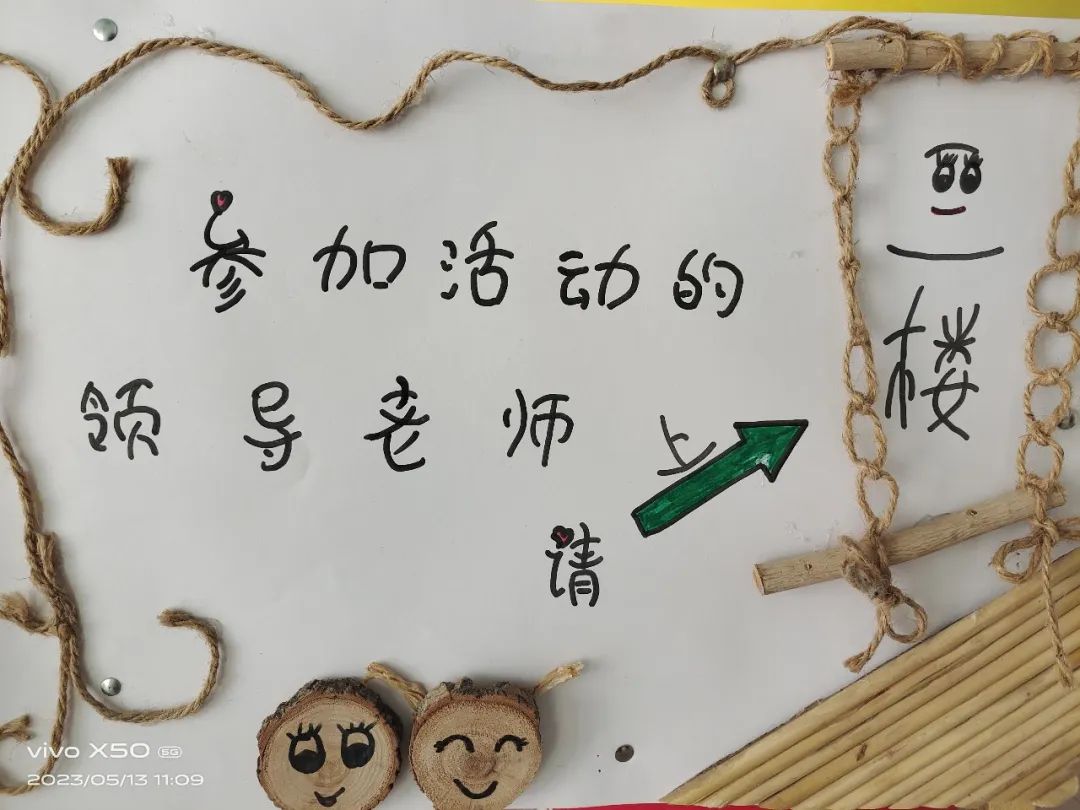 参加活动的
领导老师
请上
三楼
vivo X50 5G
2023/05/13 11:09